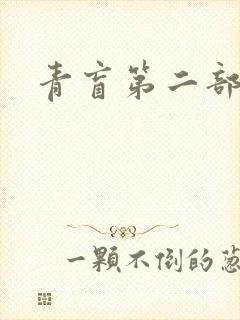 青盲第二部
一顆不倒的葱